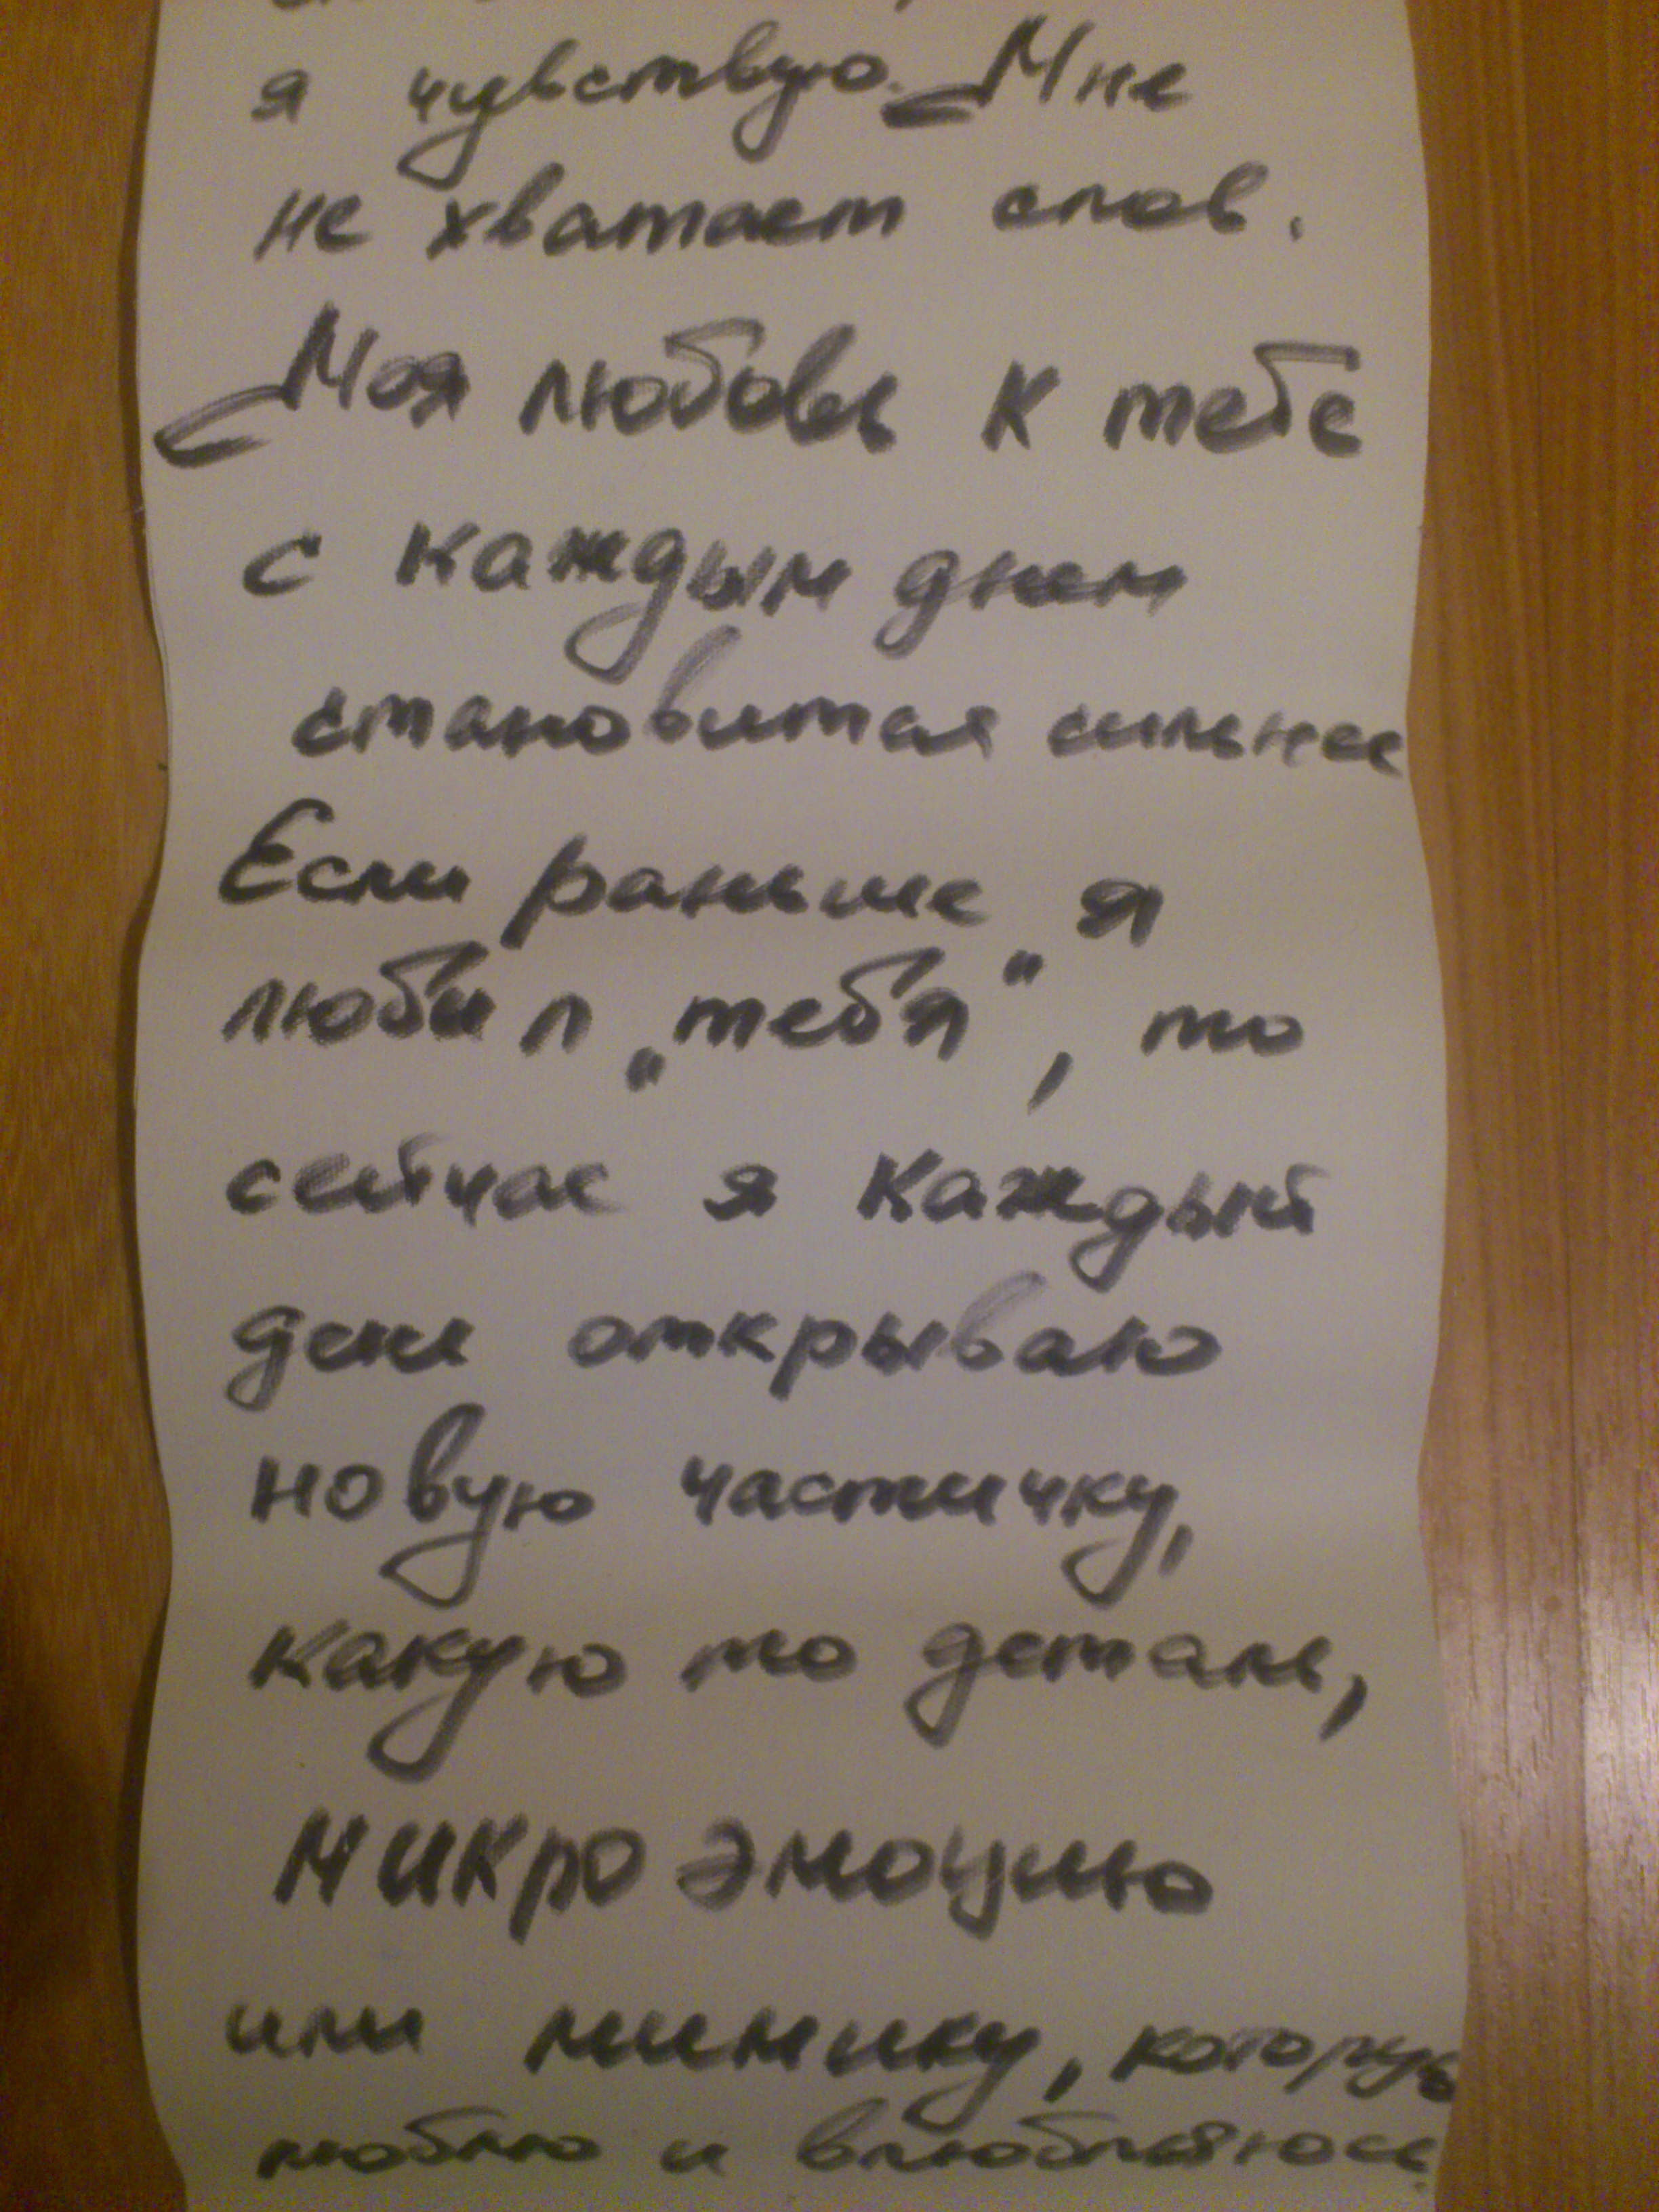 я чувствую. Мне
не хватает слов.
Моя любовь к тебе
с каждым днем
становится сильнее
Если раньше я
любил „тебя", то
сейчас я каждый
день открываю
новую частичку,
какую то деталь,
микро эмоцию
или мимику, которую
люблю и влюбляюсь